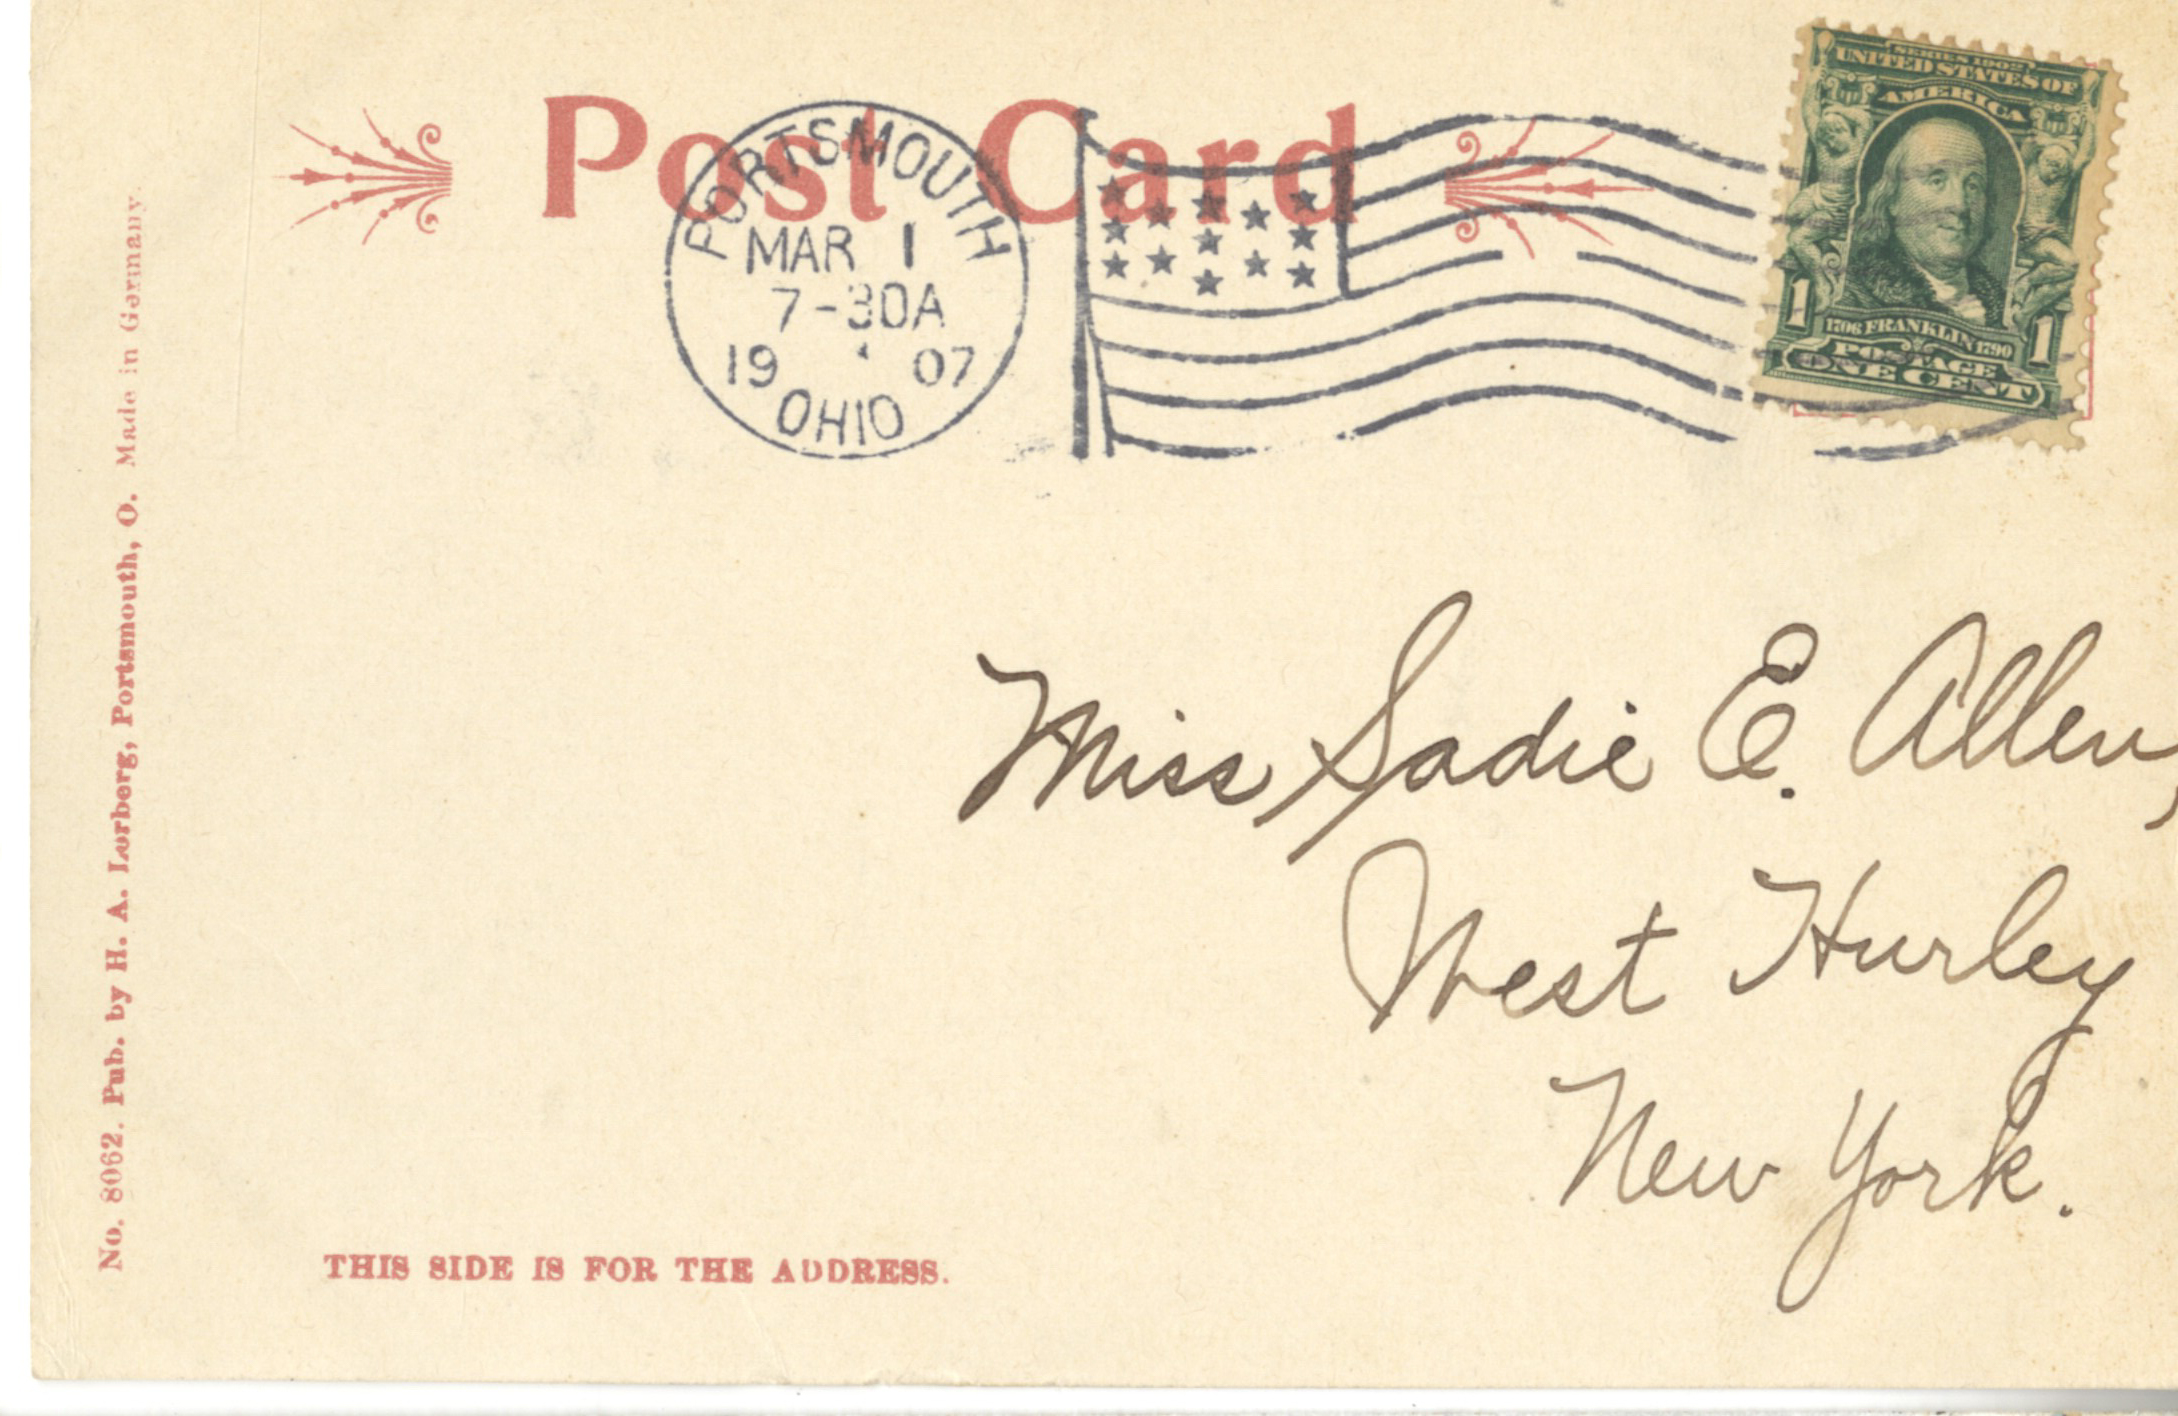 Post Card
PORTSMOUTH
MAR 1
7-30A
19 07
OHIO
SERIES 1902
UNITED STATES OF
AMERICA
1 1
1706 FRANKLIN 1790
POSTAGE
ONE CENT
Miss Sadie E. Allen,
West Hurley
New York.
THIS SIDE IS FOR THE ADDRESS.
No. 8062. Pub. by H. A. Lorberg, Portsmouth, O. Made in Germany.